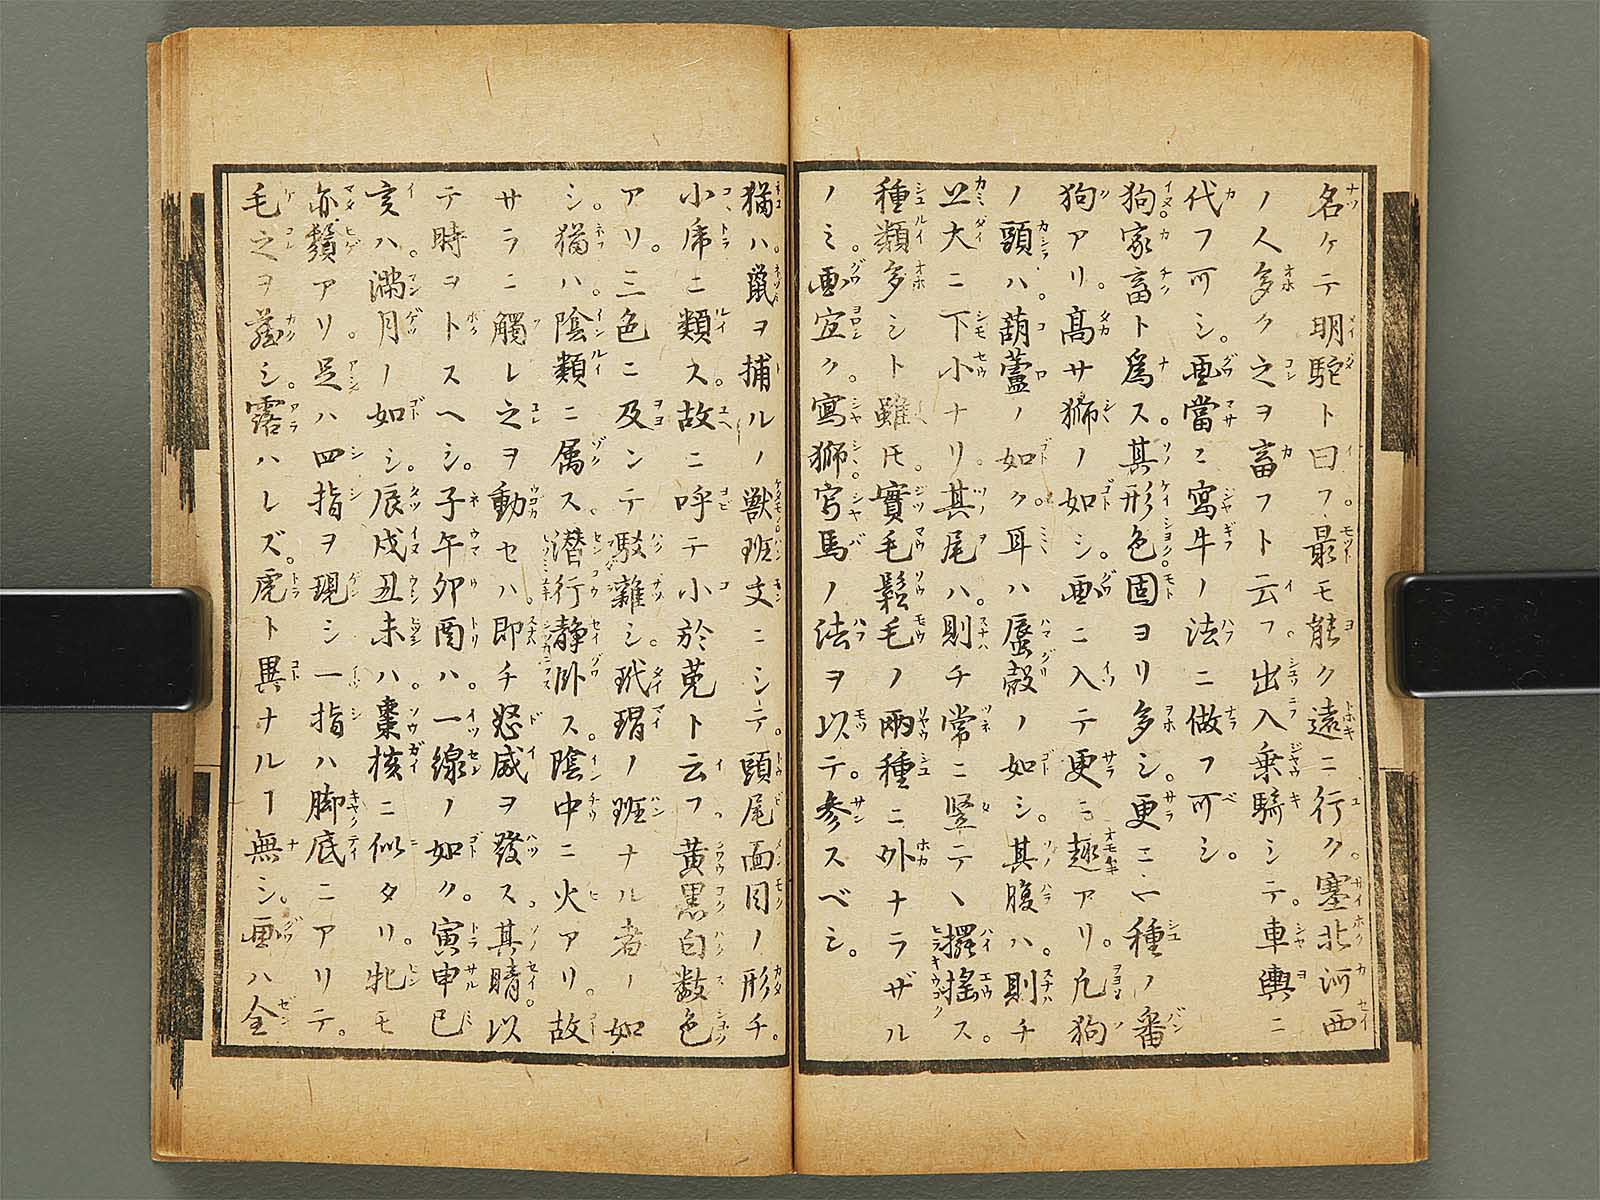 名ケテ明駝ト曰フ最モ能ク遠ニ行ク。塞北河西
ノ人多ク之ヲ畜フト云フ。出入乗騎シテ。車輿ニ
代フ可シ。画當ニ寫牛ノ法ニ做フ可シ。
狗家畜ト為ス。其形色固ヨリ多シ。更ニ一種ノ番
狗アリ。髙サ獅ノ如シ。画ニ入テ更ニ趣アリ。凡狗
ノ頭ハ。葫蘆ノ如ク。耳ハ蜃殻ノ如シ。其腹ハ。則チ
上大ニ下小ナリ。其尾ハ。則チ常ニ竪テヽ擺揺ス。
種類多シト雖𪜈。實毛鬆毛ノ兩種ニ外ナラザル
ノミ。画宜ク。寫獅寫馬ノ法ヲ以テ。参スベシ。
猫ハ。鼠ヲ捕ルノ獣班文ニシテ。頭尾面目ノ形チ。
小虎ニ類ス。故ニ呼テ小於菟ト云フ黄黒白数色
アリ。三色ニ及ンテ駁雜シ。玳瑁ノ班ナル者ノ如
シ。猫ハ。陰類ニ属ス。潜行静卧ス。陰中ニ火アリ。故
サラニ觸レ之ヲ動セハ。即チ怒威ヲ發ス。其睛。以
テ時ヲトスヘシ。子午卯酉ハ。一線ノ如ク。寅申巳
亥ハ。滿月ノ如シ。辰戍丑未ハ。棗核ニ似タリ。牝モ
亦鬚アリ。足ハ四指ヲ現シ一指ハ脚底ニアリテ。
毛之ヲ蔵シ。露ハレズ。虎ト異ナルヿ無シ。画ハ全